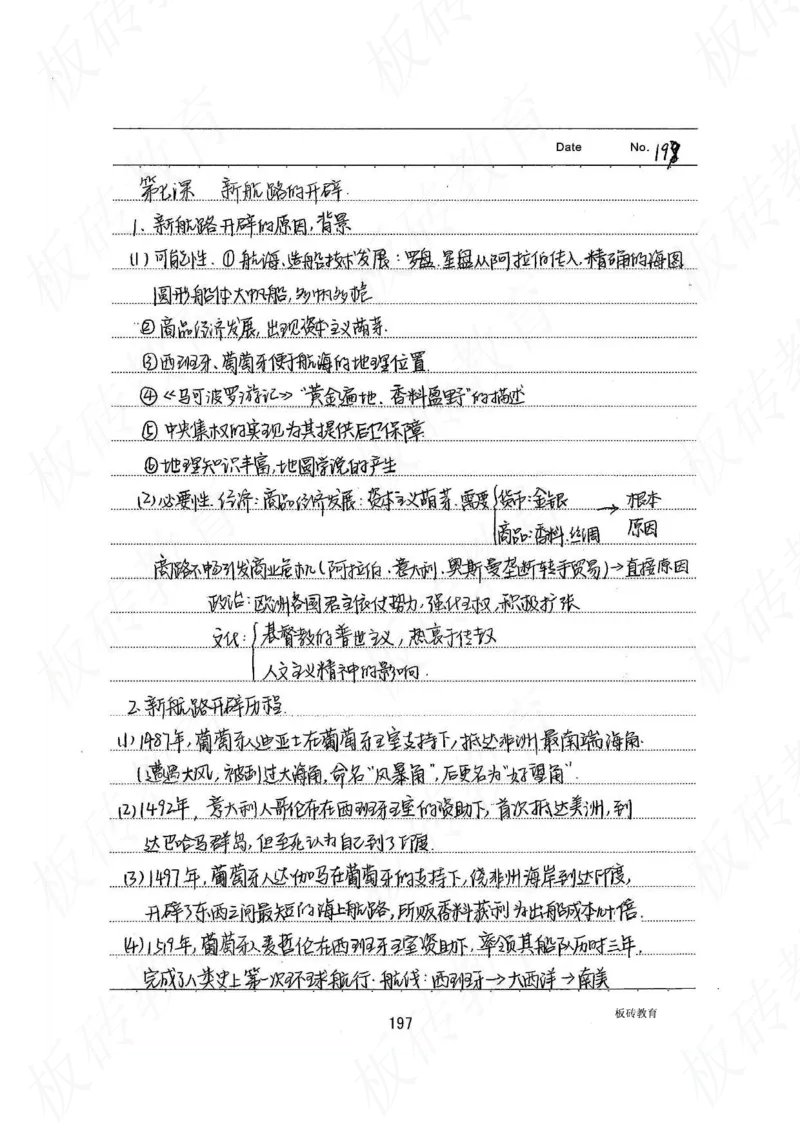 Date No. 198
第七课 新航路的开辟.
1. 新航路开辟的原因,背景
(1)可能性. ①航海、造船技术发展:罗盘、星盘从阿拉伯传入.精确的海图
圆形船体大帆船,多帆多桅
②商品经济发展,出现资本主义萌芽.
③西班牙、葡萄牙便于航海的地理位置
④《马可波罗游记》"黄金遍地、香料盈野"的描述
⑤ 中央集权的实现为其提供后卫保障.
⑥地理知识丰富,地圆学说的产生
(2)必要性. 经济:商品经济发展:资本主义萌芽.需要 货币:金银 → 根本
商品:香料.丝绸 原因
商路不畅引发商业危机(阿拉伯、意大利、奥斯曼垄断转手贸易)→直接原因
政治:欧洲各国君主依仗势力,强化王权,积极扩张
文化: 基督教的普世主义,热衷于传教
人文主义精神的影响.
2.新航路开辟历程.
(1)1487年,葡萄牙人迪亚士在葡萄牙王室支持下,抵达非洲最南端海角.
(遭遇大风,被刮过大海角,命名"风暴角",后更名为"好望角".
(2)1492年,意大利人哥伦布在西班牙王室的资助下,首次抵达美洲,到
达巴哈马群岛,但至死认为自己到了印度.
(3)1497年,葡萄牙人达·伽马在葡萄牙的支持下,绕非洲海岸到达印度,
开辟了东西之间最短的海上航路,所贩香料获利为出船成本60倍.
(4)1519年,葡萄牙人麦哲伦在西班牙王室资助下,率领其船队历时三年,
完成了人类史上第一次环球航行.航线:西班牙→大西洋→南美
197
板砖教育